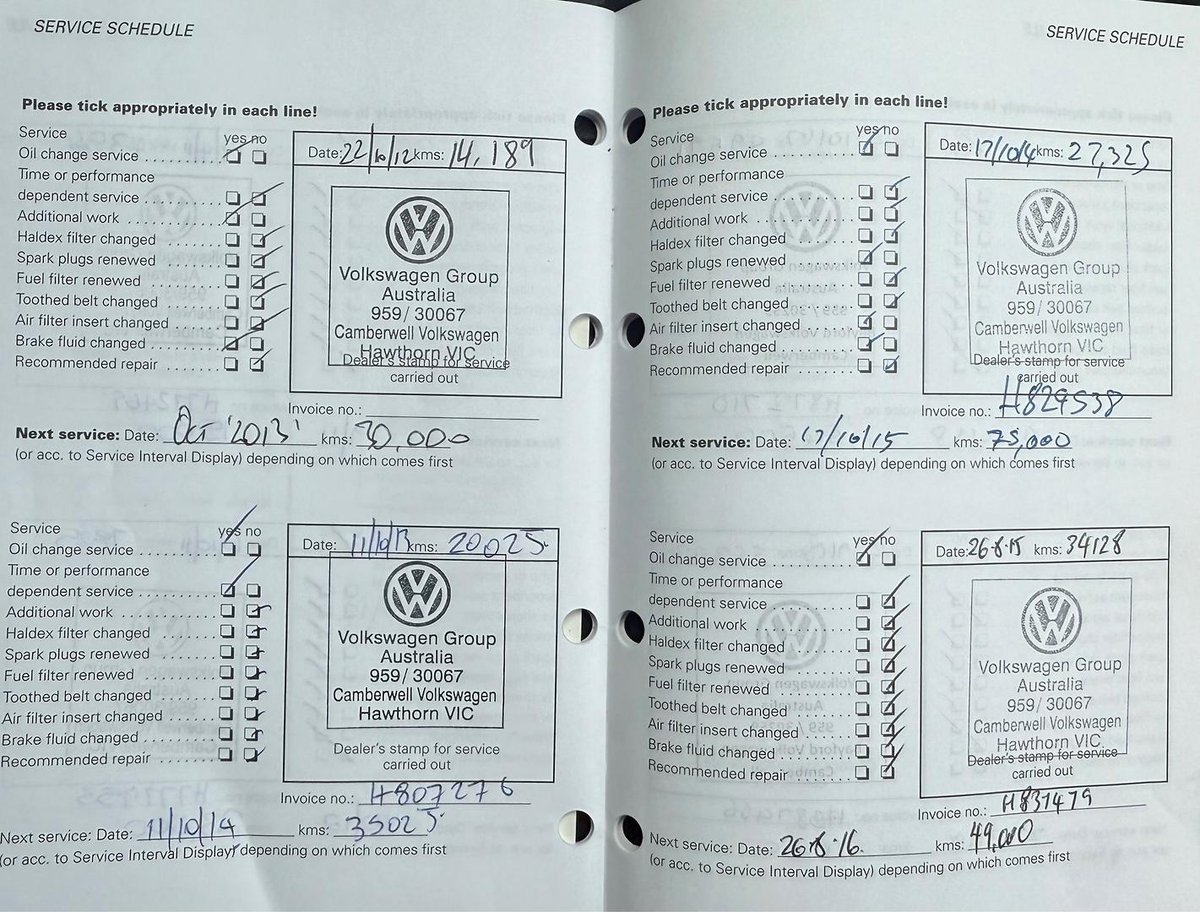 SERVICE SCHEDULE
Please tick appropriately in each line!
Service yes no
Oil change service
Time or performance
dependent service
Additional work
Haldex filter changed
Spark plugs renewed
Fuel filter renewed
Toothed belt changed
Air filter insert changed
Brake fluid changed
Recommended repair
Date: 22/10/12 kms: 14,189
Volkswagen Group
Australia
959/ 30067
Camberwell Volkswagen
Hawthorn VIC
Dealer's stamp for service
carried out
Invoice no.:
Next service: Date: Oct '2013' kms: 30,000
(or acc. to Service Interval Display) depending on which comes first
Service yes no
Oil change service
Time or performance
dependent service
Additional work
Haldex filter changed
Spark plugs renewed
Fuel filter renewed
Toothed belt changed
Air filter insert changed
Brake fluid changed
Recommended repair
Date: 11/10/13 kms: 20025
Volkswagen Group
Australia
959/ 30067
Camberwell Volkswagen
Hawthorn VIC
Dealer's stamp for service
carried out
Invoice no.: H807276
Next service: Date: 11/10/14 kms: 35025
(or acc. to Service Interval Display) depending on which comes first
SERVICE SCHEDULE
Please tick appropriately in each line!
Service yes no
Oil change service
Time or performance
dependent service
Additional work
Haldex filter changed
Spark plugs renewed
Fuel filter renewed
Toothed belt changed
Air filter insert changed
Brake fluid changed
Recommended repair
Date: 17/10/4 kms: 27,325
Volkswagen Group
Australia
959/ 30067
Camberwell Volkswagen
Hawthorn VIC
Dealer's stamp for service
carried out
Invoice no.: H829538
Next service: Date: 17/10/15 kms: 75,000
(or acc. to Service Interval Display) depending on which comes first
Service yes no
Oil change service
Time or performance
dependent service
Additional work
Haldex filter changed
Spark plugs renewed
Fuel filter renewed
Toothed belt changed
Air filter insert changed
Brake fluid changed
Recommended repair
Date: 26·8·15 kms: 34128
Volkswagen Group
Australia
959/ 30067
Camberwell Volkswagen
Hawthorn VIC
Dealer's stamp for service
carried out
Invoice no.: H837479
Next service: Date: 26·8·16. kms: 49,000
(or acc. to Service Interval Display) depending on which comes first